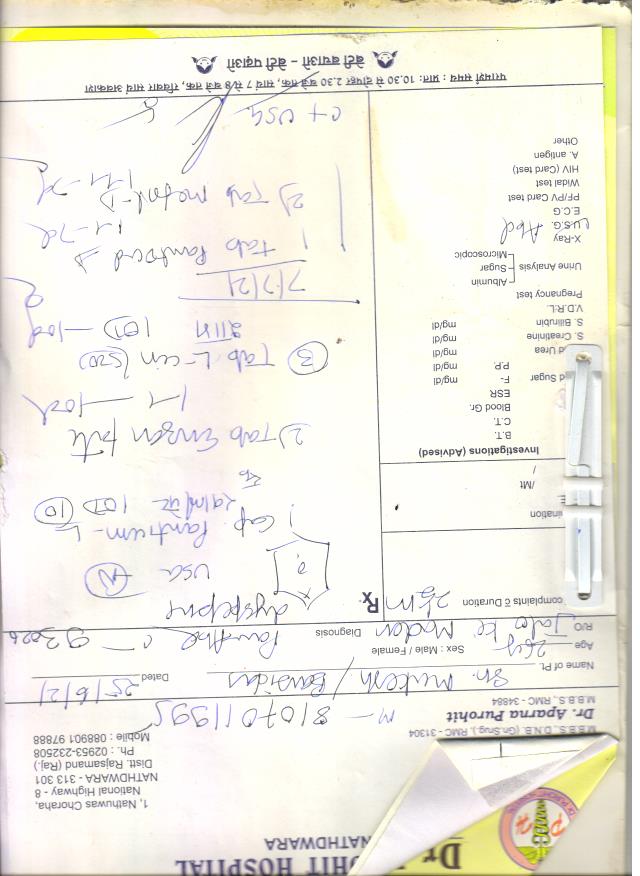 Dr. P OHIT HOSPITAL
NATHDWARA
1, Nathuwas Choraha,
National Highway - 8
NATHDWARA - 313 301
Distt. Rajsamand (Raj.)
Ph. : 02953-232508
Mobile : 088901 97888
M.B.B.S., D.N.B. (Gn.Srug.), RMC - 31304
Dr. Aparna Purohit
M.B.B.S., RMC - 34884
M - 8107011995
Name of Pt. Sh. Mukesh / Bansidas Dated 25/6/21
Age 26y Sex : Male / Female
R/O Diagnosis Pain Abd
complaints c Duration Rx
dyspepsia
USG (N)
ination
1) Cap Pantrum-L
1OD (10)
/Mt
2) Tab Enzon forte
1-1 - 10d
Investigations (Advised)
B.T.
C.T.
Blood Gr.
ESR
d Sugar F- mg/dl
P.P. mg/dl
d Urea mg/dl
S. Creatinine mg/dl
S. Bilirubin mg/dl
V.D.R.L.
Pregnancy test
Urine Analysis Albumin
Sugar
Microscopic
X-Ray
U.S.G. Abd
E.C.G
PF/PV Card test
Widal test
HIV (Card test)
A. antigen
Other
3) Tab L-cin (500)
1OD - 10d
7/7/21
1 tab Pantocid D
1-1 - 7d
2) Tab metnl-D
1-1 - 7d
C+ USG
परामर्श समय : प्रातः 10.30 से दोपहर 2.30 बजे तक, सायं 7 से 8 बजे तक, रविवार सायं अवकाश
बेटी बचाओ - बेटी पढ़ाओ